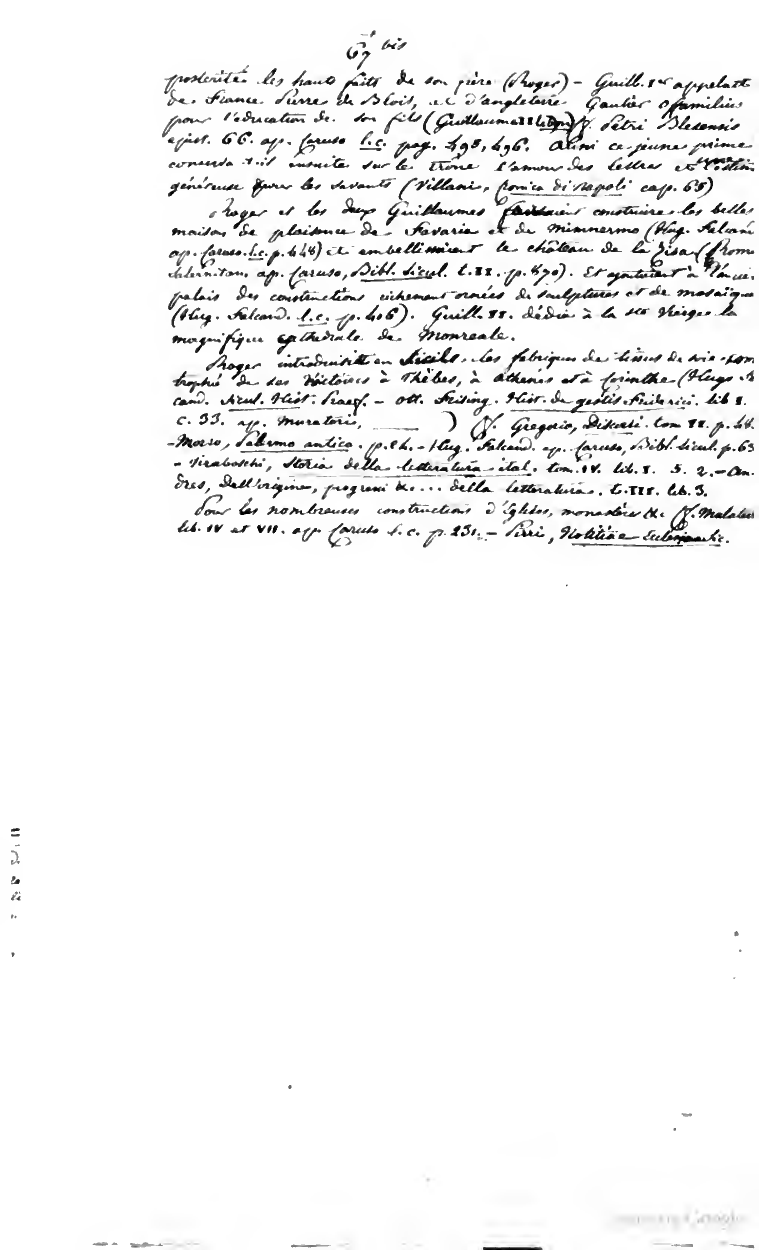 67 bis
postérité les hauts faits de son père (Roger) – Guill. Ier appelait
de France Pierre de Blois, et d'angleterre Gautier Ofamilius
pour l'éducation de son fils (Guillaume II le bon) Cf. Petri Blesensis
epist. 66. ap. Caruso l.c. pag. 498, 496. Ainsi ce jeune prince
conserva-t-il ensuite sur le trône l'amour des lettres et l'estime
généreuse pour les savants (Villani, Cronica di Napoli cap. 68)
Roger et les deux Guillaumes faisaient construire les belles
maisons de plaisance de Favaria et de Mimnermo (Hug. Falcand
ap. Caruso l.c. p. 448) et embellissaient le château de la Zisa (Rom.
Salernitan. ap. Caruso, Bibl. Sicul. t. II. p. 870). Et ajoutaient à l'ancien
palais des constructions richement ornées de sculptures et de mosaïque
(Hug. Falcand. l.c. p. 406). Guill. II. dédie à la ste Vierge la
magnifique cathédrale de Monreale.
Roger introduisit en Sicile les fabriques de tissus de soie
trophé de ses Victoires à Thèbes, à Athènes et à Corinthe (Hugo
cand. Sicul. Hist. Praef. – Ott. Frising. Hist. de gestis Friderici. lib I.
c. 33. ap. Muratori, ) Cf. Gregorio, Discorsi. tom II. p.
– Morso, Palermo antico. p. – Hug. Falcand. ap. Caruso, Bibl. Sicul. p. 63
– Tiraboschi, Storia della letteratura ital. tom. IV. lib. I. 5. 2. – An.
dres, Dell'origine, progressi &.... della letteratura. t. III. lib. 3.
Pour les nombreuses constructions d'églises, monastères &c. Cf. Malater
lib. IV et VII. ap. Caruso l.c. p. 231. – Pirri, Notitiae Ecclesiastic.